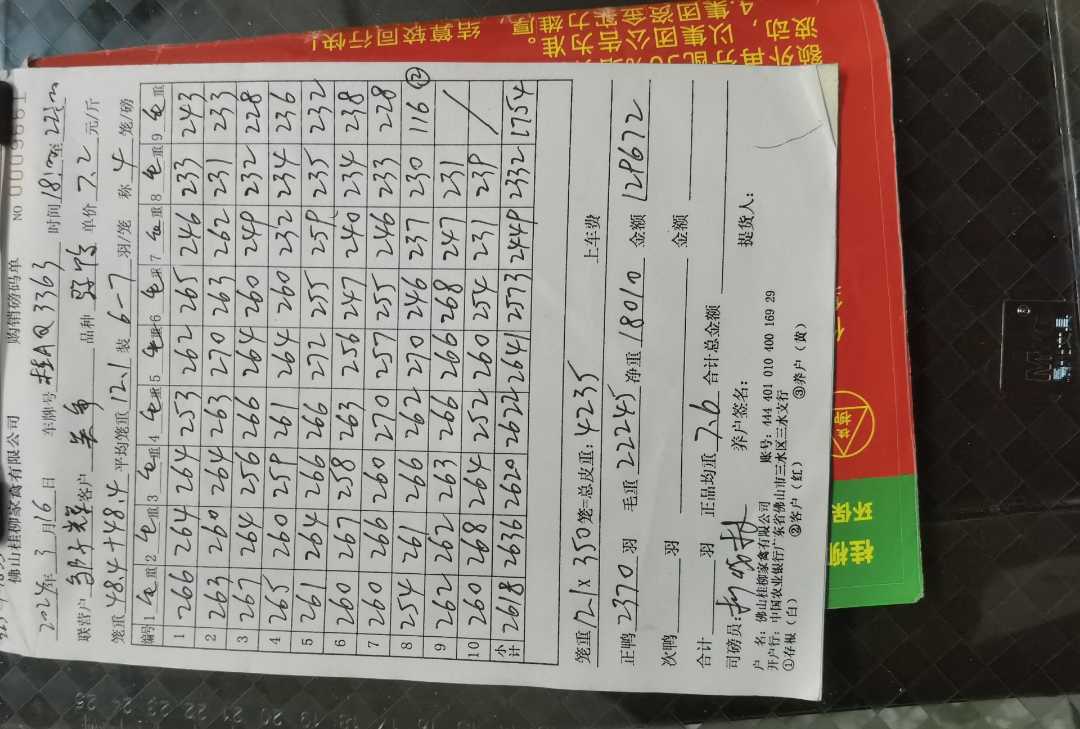 佛山桂柳家禽有限公司 购销磅码单 NO 0009661
2024年 3 月 16 日 车牌号 桂AQ3363 时间 18:00 至 22:00
联营户 客户 品种 单价 7.2 元/斤
笼重 48.4+48.4 平均笼重 12.1 装 6-7 羽/笼 称 4 笼/磅
编号 1 毛重 2 毛重 3 毛重 4 毛重 5 毛重 6 毛重 7 毛重 8 毛重 9 毛重
1 266 264 264 253 262 265 246 233 243
2 263 260 264 263 270 263 262 231 233
3 267 264 256 266 264 260 249 232 228
4 265 260 259 261 264 260 232 234 236
5 261 264 266 266 272 255 259 235 232
6 260 267 258 263 256 247 240 234 238
7 260 266 260 270 257 255 246 233 228
8 254 261 266 262 270 246 237 230 116 ⑫
9 262 262 263 266 266 268 247 231
10 260 268 264 252 260 254 231 239
小计 2618 2636 2620 2622 2641 2573 2449 2332 1754
笼重 121 x 350 笼=总皮重: 4235 上车费
正鸭 2370 羽 毛重 22245 净重 18010 金额 129672
次鸭 羽 金额
合计 羽 正品均重 7.6 合计总金额
司磅员: 养户签名: 提货人:
户 名: 佛山桂柳家禽有限公司 账号: 444 401 010 400 169 29
开户行: 中国农业银行广东省佛山市三水区三水支行
①存根（白） ②客户（红） ③养户（黄）
结算较回行快!
4.集团资金实力雄厚,
以集团公告为准
波动,
额外再
桂柳
环保